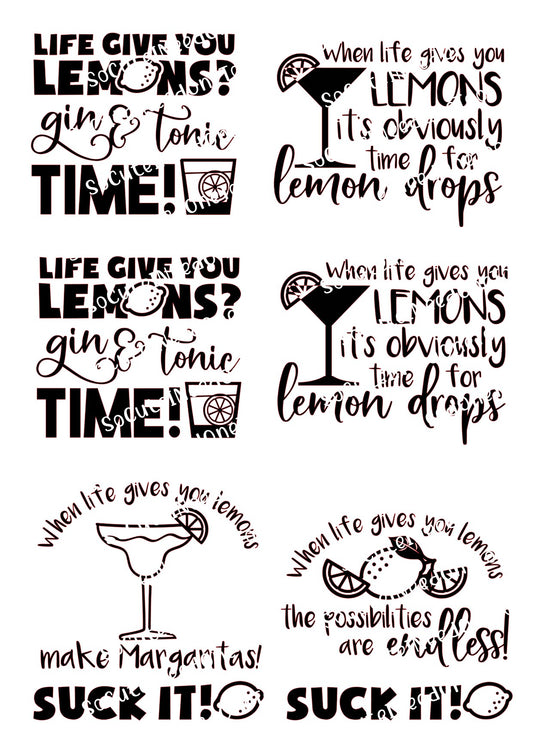 LIFE GIVE YOU
LEMONS?
gin & tonic
TIME!
When life gives you
LEMONS
it's obviously
time for
lemon drops
LIFE GIVE YOU
LEMONS?
gin & tonic
TIME!
When life gives you
LEMONS
it's obviously
time for
lemon drops
When life gives you lemons
make Margaritas!
SUCK IT!
When life gives you lemons
the possibilities
are endless!
SUCK IT!